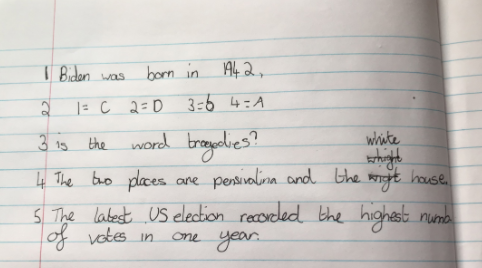 1 Biden was born in 1942,
2 1= C 2=D 3=b 4=A
3 is the word tragedies?
white
whight
4 The two places are pensivalina and the wight house.
5 The latest US election recorded the highest numb
of votes in one year.